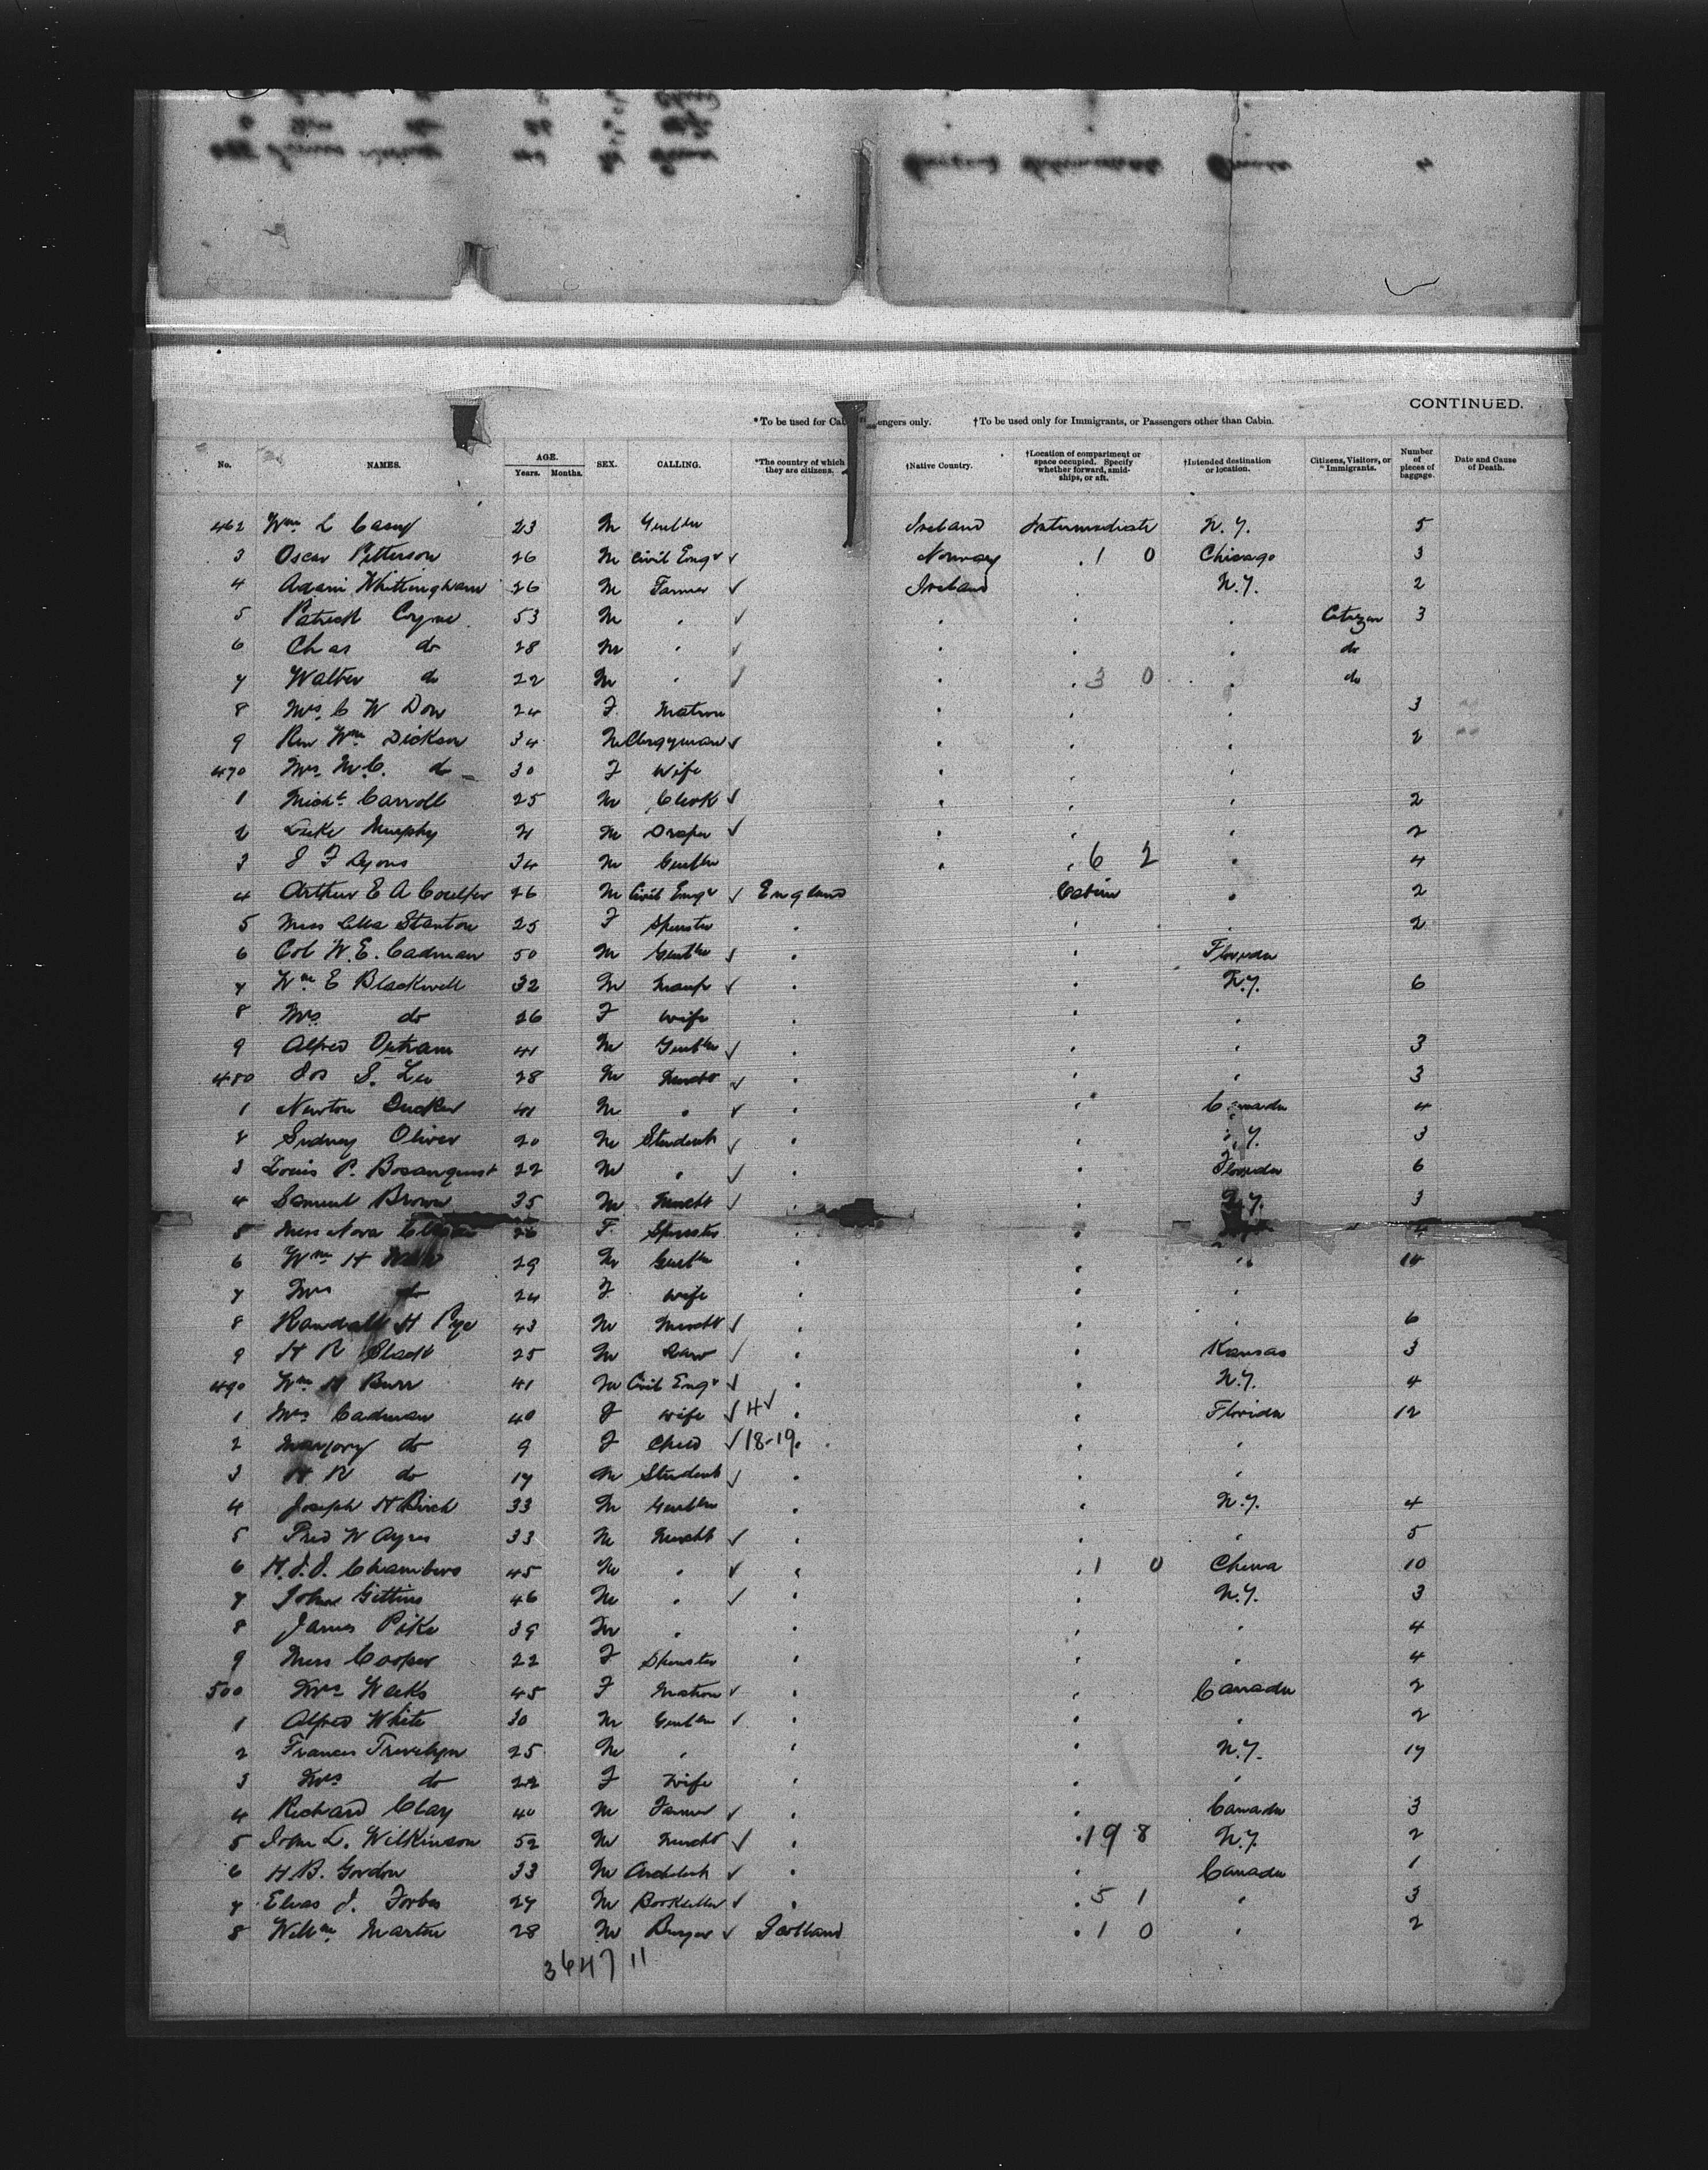 CONTINUED.
*To be used for Cab engers only. †To be used only for Immigrants, or Passengers other than Cabin.
No. NAMES. AGE. Years. Months. SEX. CALLING. *The country of which they are citizens. †Native Country. †Location of compartment or space occupied. Specify whether forward, amidships, or aft. †Intended destination or location. Citizens, Visitors, or Immigrants. Number of pieces of baggage. Date and Cause of Death.
462 Wm L Casey 23 M Gentln Ireland Intermediate N.Y. 5
3 Oscar Petterson 26 M Civil Engr ✓ Norway " 1 0 Chicago 3
4 Adam Whittingham 26 M Farmer ✓ Ireland " N.Y. 2
5 Patrick Coyne 53 M " ✓ " " " Citizen 3
6 Chas do 28 M " ✓ " " " do
7 Walter do 22 M " ✓ " " 3 0 " do
8 Mrs C W Dow 24 F. Matron " " " 3
9 Rev Wm Dickson 34 M Clergyman ✓ " " " 2
470 Mrs M.C. do 30 F Wife " " "
1 Michl Carroll 25 M Clerk ✓ " " " 2
2 Luke Murphy 21 M Draper ✓ " " " 2
3 J F Lyons 34 M Gentln " " 6 2 " 4
4 Arthur E A Coulter 26 M Civil Engr ✓ England Cabin " 2
5 Miss Lilla Stanton 25 F Spinster " " " 2
6 Col W.E. Cadman 50 M Gentln ✓ " " Florida
7 Wm E Blackwell 32 M Manfr ✓ " " N.Y. 6
8 Mrs do 26 F Wife " " "
9 Alfred Outram 41 M Gentln ✓ " " " 3
480 Jos S. Lee 28 M Mercht ✓ " " " 3
1 Newton Ducker 41 M " ✓ " " Canada 4
2 Sydney Oliver 20 M Student ✓ " " Y. 3
3 Louis P. Bosanquet 22 M " ✓ " " Florida 6
4 Samuel Brown 35 M Mercht ✓ " " N.Y. 3
5 Miss Nora 26 F. Spinster " " 4
6 Wm H 29 M Gentln " " " 14
7 Mrs do 24 F Wife " " "
8 Randall H Pye 43 M Mercht ✓ " " " 6
9 H R Slack 25 M Law ✓ " " Kansas 3
490 Wm H Burr 41 M Civil Engr ✓ " " N.Y. 4
1 Mrs Cadman 40 F Wife ✓ H✓ " " Florida 12
2 Marjory do 9 F Child ✓ 18-19 " " "
3 H R do 17 M Student ✓ " " "
4 Joseph H Birch 33 M Gentln " " N.Y. 4
5 Fred W Ayres 33 M Mercht ✓ " " " 5
6 H.J.J. Chambers 45 M " ✓ " " 1 0 China 10
7 John Gittins 46 M " ✓ " " N.Y. 3
8 James Pike 39 M " " " " 4
9 Miss Cooper 22 F Spinster " " " 4
500 Mrs Weeks 45 F Matron ✓ " " Canada 2
1 Alfred White 30 M Gentln ✓ " " " 2
2 Frances Trevelyn 25 M " " " N.Y. 17
3 Mrs do 22 F Wife " " "
4 Richard Clay 40 M Farmer ✓ " " Canada 3
5 John L. Wilkinson 52 M Mercht ✓ " " 19 8 N.Y. 2
6 H.B. Gordon 33 M Architect ✓ " " Canada 1
7 Elias J. Forbes 27 M Bookseller ✓ " " 5 1 " 3
8 Willm Martin 28 M Buyer ✓ Scotland " 1 0 " 2
3647 11